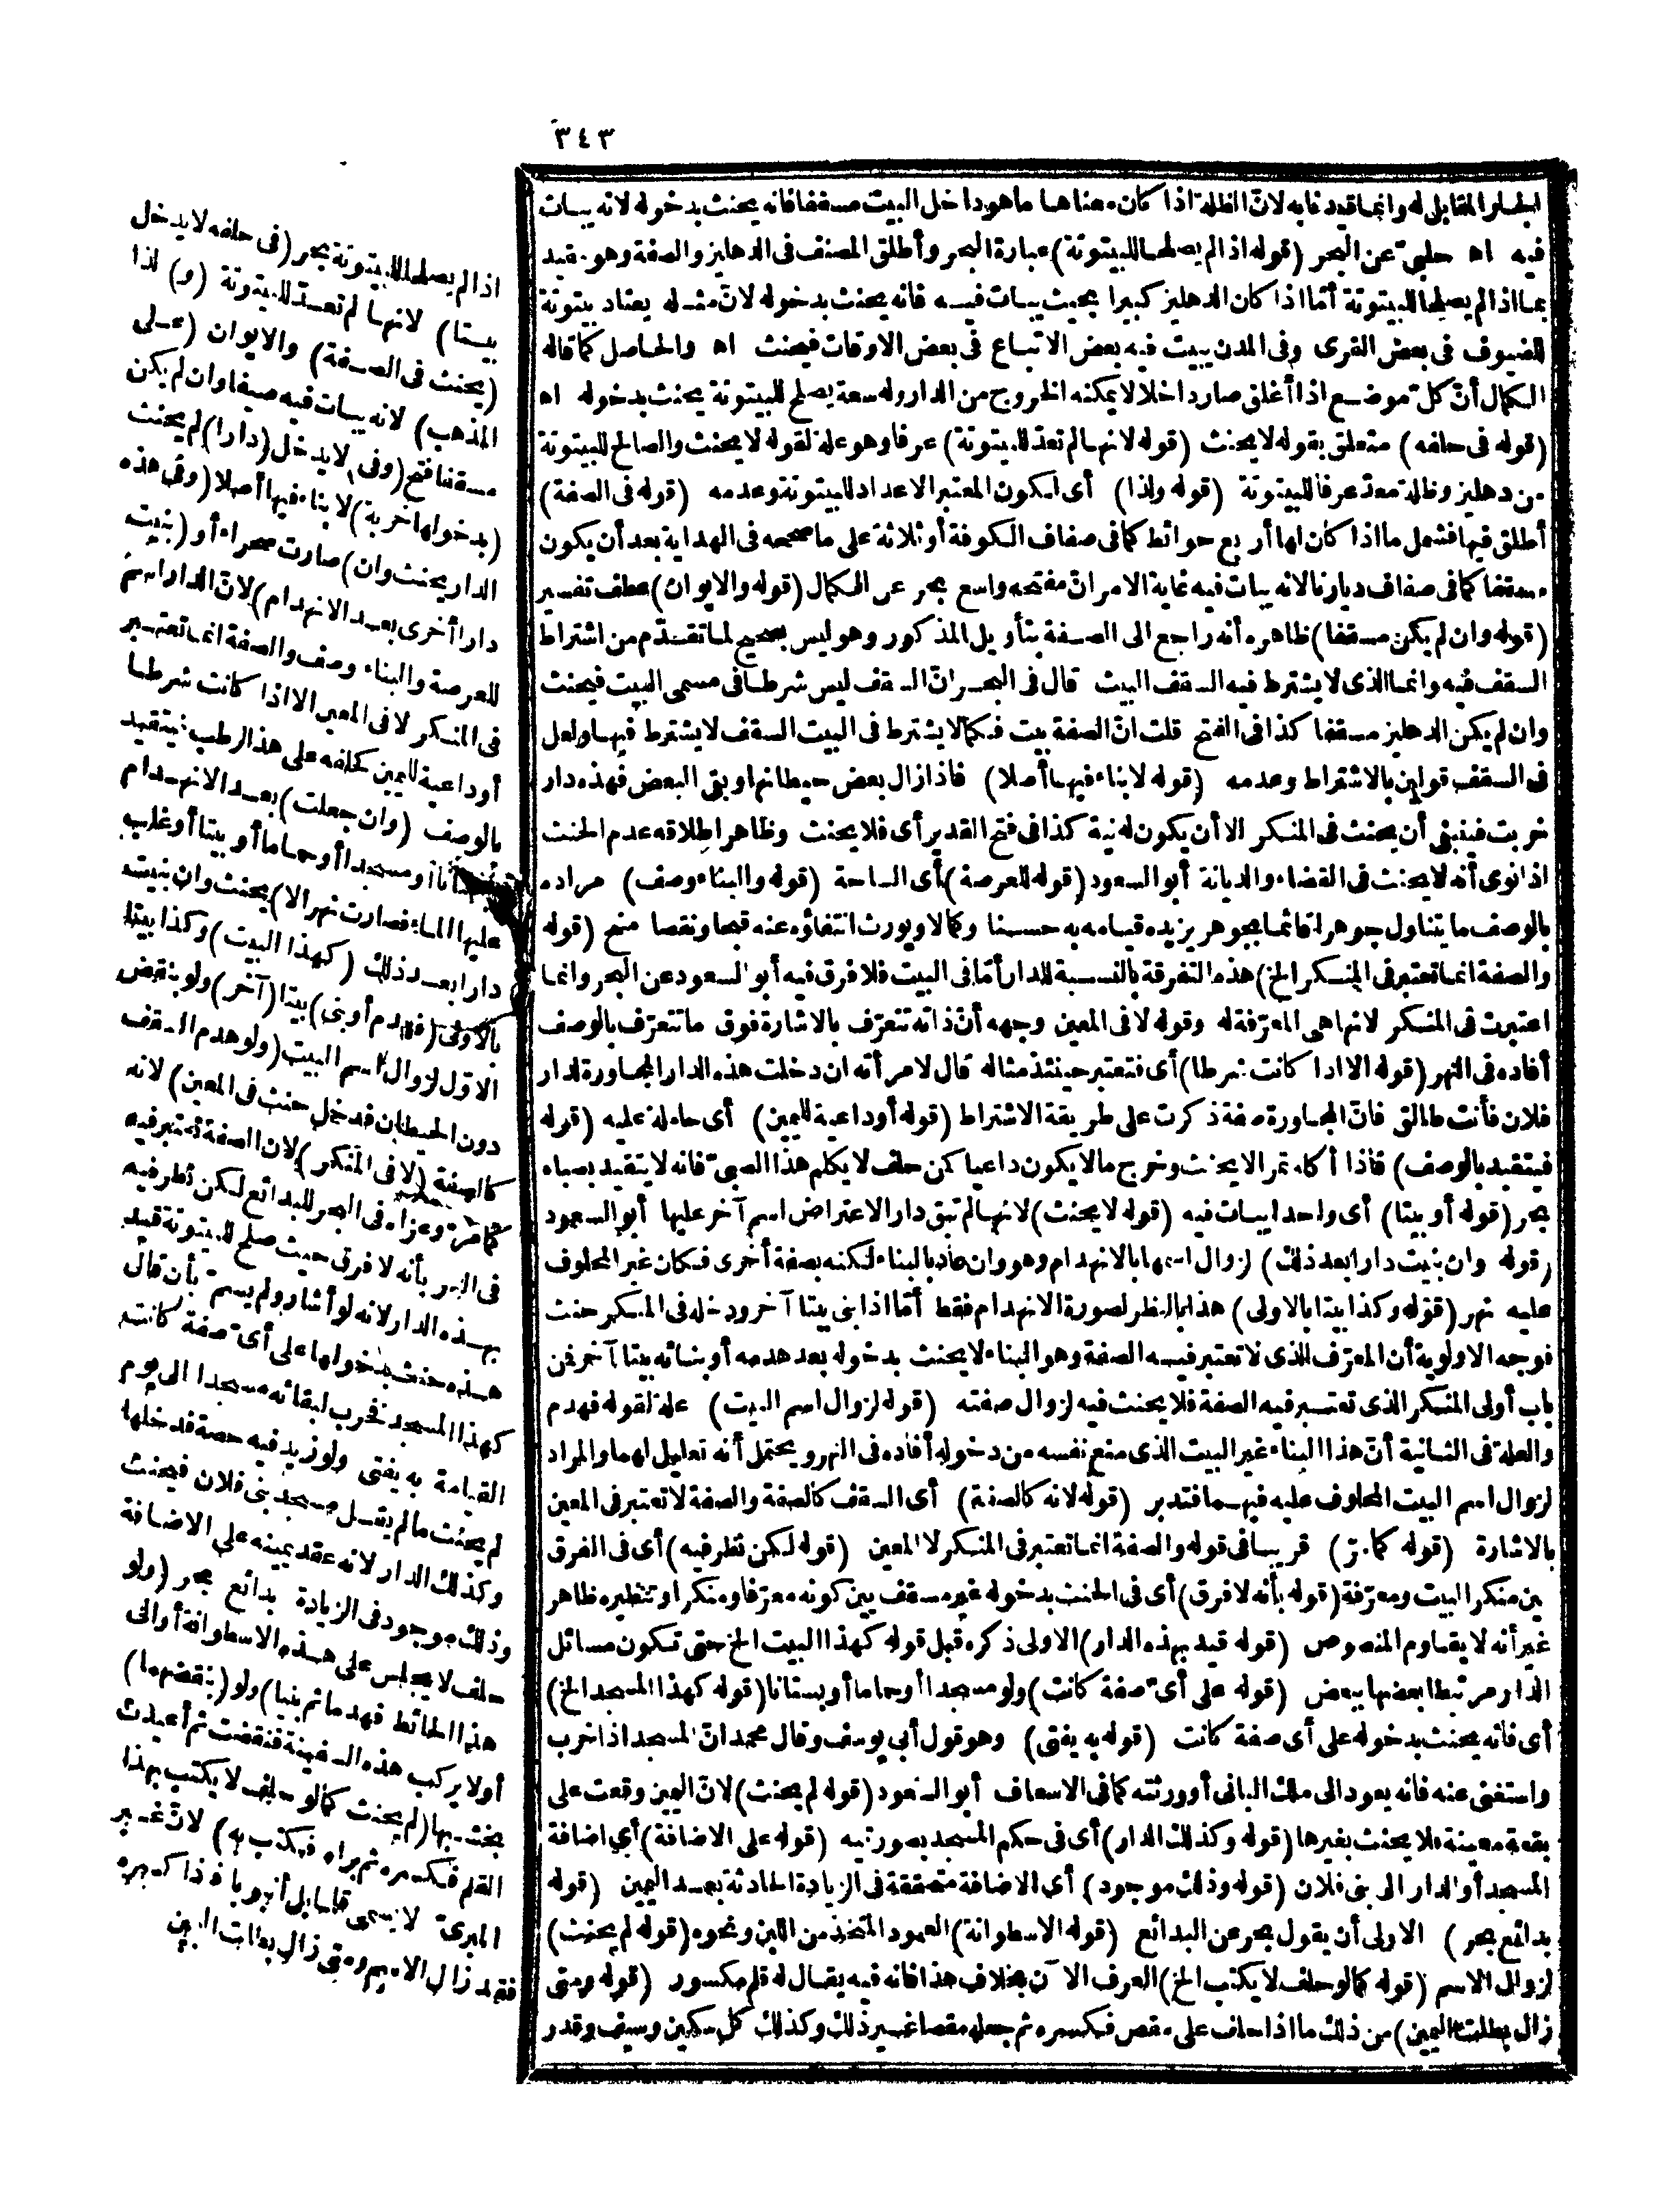 ٣٤٣
الجار المقابل له وانما قيدنا به لان الظلة اذا كان معناها ما هو داخل البيت مسقفا فانه يحنث بدخوله لانه يبات
فيه اه حلبى عن البحر (قوله اذا لم يصلحا للبيتوتة) عبارة البحر وأطلق المصنف فى الدهليز والصفة وهو مقيد
بما اذا لم يصلحا للبيتوتة أمّا اذا كان الدهليز كبيرا بحيث يبات فيه فانه يحنث بدخوله لانّ مثله يعتاد بيتوتة
للضيوف فى بعض القرى وفى المدن يبيت فيه بعض الاتباع فى بعض الاوقات فيحنث اه والحاصل كما قاله
الكمال أنّ كلّ موضع اذا أغلق صار داخلا لا يمكنه الخروج من الدار وله سعة يصلح للبيتوتة يحنث بدخوله اه
(قوله فى حلفه) متعلق بقوله لا يحنث (قوله لانها لم تعدّ للبيتوتة) عرفا وهو علة لقوله لا يحنث والصالح للبيتوتة
من دهليز وظلة معدّ عرفا للبيتوتة (قوله ولذا) أى لكون المعتبر الاعداد للبيتوتة وعدمه (قوله فى الصفة)
أطلق فيها فشمل ما اذا كان لها أربع حوائط كما فى صفاف الكوفة أو ثلاثة على ما صححه فى الهداية بعد أن يكون
مسقفا كما فى صفاف ديارنا لانه يبات فيه غاية الامر انّ مفتحه واسع بحر عن الكمال (قوله والايوان) عطف تفسير
(قوله وان لم يكن مسقفا) ظاهره أنه راجع الى الصفة بتأويل المذكور وهو ليس بصحيح لما تقدّم من اشتراط
السقف فيه وانما الذى لا يشترط فيه السقف البيت قال فى البحر انّ السقف ليس شرطا فى مسمى البيت فيحنث
وان لم يكن الدهليز مسقفا كذا فى الفتح قلت انّ الصفة بيت فكما لا يشترط فى البيت السقف لا يشترط فيها ولعل
فى السقف قولين بالاشتراط وعدمه (قوله لا بناء فيها أصلا) فاذا زال بعض حيطانها وبقى البعض فهذه دار
خربت فينبغى أن يحنث فى المنكر الا أن يكون له نية كذا فى فتح القدير أى فلا يحنث وظاهر اطلاقه عدم الحنث
اذا نوى أنه لا يحنث فى القضاء والديانة أبو السعود (قوله للعرصة) أى الساحة (قوله والبناء وصف) مراده
بالوصف ما يتناول جوهرا قائما بجوهر يزيده قيامه به حسنا وكمالا ويورث انتفاؤه عنه قبحا ونقصا منح (قوله
والصفة انما تعتبر فى المنكر الخ) هذه التفرقة بالنسبة للدار أمّا فى البيت فلا فرق فيه أبو السعود عن البحر وانما
اعتبرت فى المنكر لانها هى المعرّفة له وقوله لا فى المعين وجهه أنّ ذاته تتعرّف بالاشارة فوق ما تتعرّف بالوصف
أفاده فى النهر (قوله الا اذا كانت شرطا) أى فتعتبر حينئذ مثاله قال لامرأته ان دخلت هذه الدار المجاورة لدار
فلان فأنت طالق فانّ المجاورة صفة ذكرت على طريقة الاشتراط (قوله أو داعية لليمين) أى حاملة عليه (قوله
فيتقيد بالوصف) فاذا أكله تمر الا يحنث وخرج ما لا يكون داعيا كمن حلف لا يكلم هذا الصبىّ فانه لا يتقيد بصباه
بحر (قوله أو بيتا) أى واحدا يبات فيه (قوله لا يحنث) لانها لم تبق دارا لاعتراض اسم آخر عليها أبو السعود
(قوله وان بنيت دارا بعد ذلك) لزوال اسمها بالانهدام وهو وان عاد بالبناء لكنه بصفة أخرى فكان غير المحلوف
عليه نهر (قوله وكذا بيتا بالاولى) هذا بالنظر لصورة الانهدام فقط أمّا اذا بنى بيتا آخر ودخله فى المنكر حنث
فوجه الاولوية أن المعرّف الذى لا تعتبر فيه الصفة وهو البناء لا يحنث بدخوله بعد هدمه أو بنائه بيتا آخر فمن
باب أولى المنكر الذى تعتبر فيه الصفة فلا يحنث فيه لزوال صفته (قوله لزوال اسم البيت) علة لقوله فهدم
والعلة فى الثانية أنّ هذا البناء غير البيت الذى منع نفسه من دخوله أفاده فى النهر ويحتمل أنه تعليل لهما والمراد
لزوال اسم البيت المحلوف عليه فيهما فتدبر (قوله لانه كالصفة) أى السقف كالصفة والصفة لا تعتبر فى المعين
بالاشارة (قوله كما مرّ) قريبا فى قوله والصفة انما تعتبر فى المنكر لا المعين (قوله لكن نظر فيه) أى فى الفرق
بين منكر البيت ومعرّفه (قوله بأنه لا فرق) أى فى الحنث بدخوله غير مسقف بين كونه معرّفا ومنكرا وتنظيره ظاهر
غير أنه لا يقاوم المنصوص (قوله قيد بهذه الدار) الاولى ذكره قبل قوله كهذا البيت الخ حتى تكون مسائل
الدار مرتبطا بعضها ببعض (قوله على أىّ صفة كانت) ولو مسجدا أو حماما أو بستانا (قوله كهذا المسجد الخ)
أى فانه يحنث بدخوله على أى صفة كانت (قوله به يفتى) وهو قول أبى يوسف وقال محمد انّ المسجد اذا خرب
واستغنى عنه فانه يعود الى ملك البانى أو ورثته كما فى الاسعاف أبو السعود (قوله لم يحنث) لانّ اليمين وقعت على
بقعة معينة فلا يحنث بغيرها (قوله وكذلك الدار) أى فى حكم المسجد بصورتيه (قوله على الاضافة) أى اضافة
المسجد أو الدار الى بنى فلان (قوله وذلك موجود) أى الاضافة متحققة فى الزيادة الحادثة بعد اليمين (قوله
بدائع بحر) الاولى أن يقول بحر عن البدائع (قوله الاسطوانة) العمود المتخذ من اللبن ونحوه (قوله لم يحنث)
لزوال الاسم (قوله كما لو حلف لا يكتب الخ) العرف الآن بخلاف هذا فانه فيه يقال له قلم مكسور (قوله ومتى
زال بطلت اليمين) من ذلك ما اذا حلف على مقص فكسره ثم جعله مقصا غير ذلك وكذلك كل سكين وسيف وقدر
اذا لم يصلحا للبيتوتة بحر (فى حلفه لا يدخل
بيتا) لانها لم تعدّ للبيتوتة (و) لذا
(يحنث فى الصفة) والايوان (على
المذهب) لانه يبات فيه صيفا وان لم يكن
مسقفا فتح (وفى لا يدخل (دارا) لم يحنث
(بدخولها خربة) لا بناء فيها أصلا (وفى هذه
الدار يحنث وان) صارت صحراء أو (بنيت
دارا أخرى بعد الانهدام) لانّ الدار اسم
للعرصة والبناء وصف والصفة انما تعتبر
فى المنكر لا فى المعين الا اذا كانت شرطا
أو داعية لليمين كحلفه على هذا الرطب فيتقيد
بالوصف (وان جعلت) بعد الانهدام
أو مسجدا أو حماما أو بيتا أو غلب
عليها الماء فصارت نهرا لا) يحنث وان بنيت
دارا بعد ذلك (كهذا البيت) وكذا بيتا
بالاولى (فهدم أو بنى) بيتا (آخر) ولو بنقض
الاوّل لزوال اسم البيت (ولو هدم السقف
دون الحيطان فدخل حنث فى المعين) لانه
كالصفة (لا فى المنكر) لان الصفة تعتبر فيه
كما مرّ وعزاه فى البحر للبدائع لكن نظر فيه
فى النهر بأنه لا فرق حيث صلح للبيتوتة قيد
بهذه الدار لانه لو أشار ولم يسمّ بأن قال
هذه حنث بدخولها على أىّ صفة كانت
كهذا المسجد فخرب لبقائه مسجدا الى يوم
القيامة به يفتى ولو زيد فيه حصة فدخلها
لم يحنث ما لم يقل مسجد بنى فلان فيحنث
وكذلك الدار لانه عقد يمينه على الاضافة
وذلك موجود فى الزيادة بدائع بحر (ولو
حلف لا يجلس على هذه الاسطوانة أو الى
هذا الحائط فهدما ثم بنيا) ولو (بنقضهما)
أو لا يركب هذه السفينة فنقضت ثم أعيدت
بخشبها (لم يحنث كما لو حلف لا يكتب بهذا
القلم فكسره ثم براه فكتب به) لانّ غير
المبرىّ لا يسمى قلما بل أنبوبا فاذا كسره
فقد زال الاسم ومتى زال بطلت اليمين